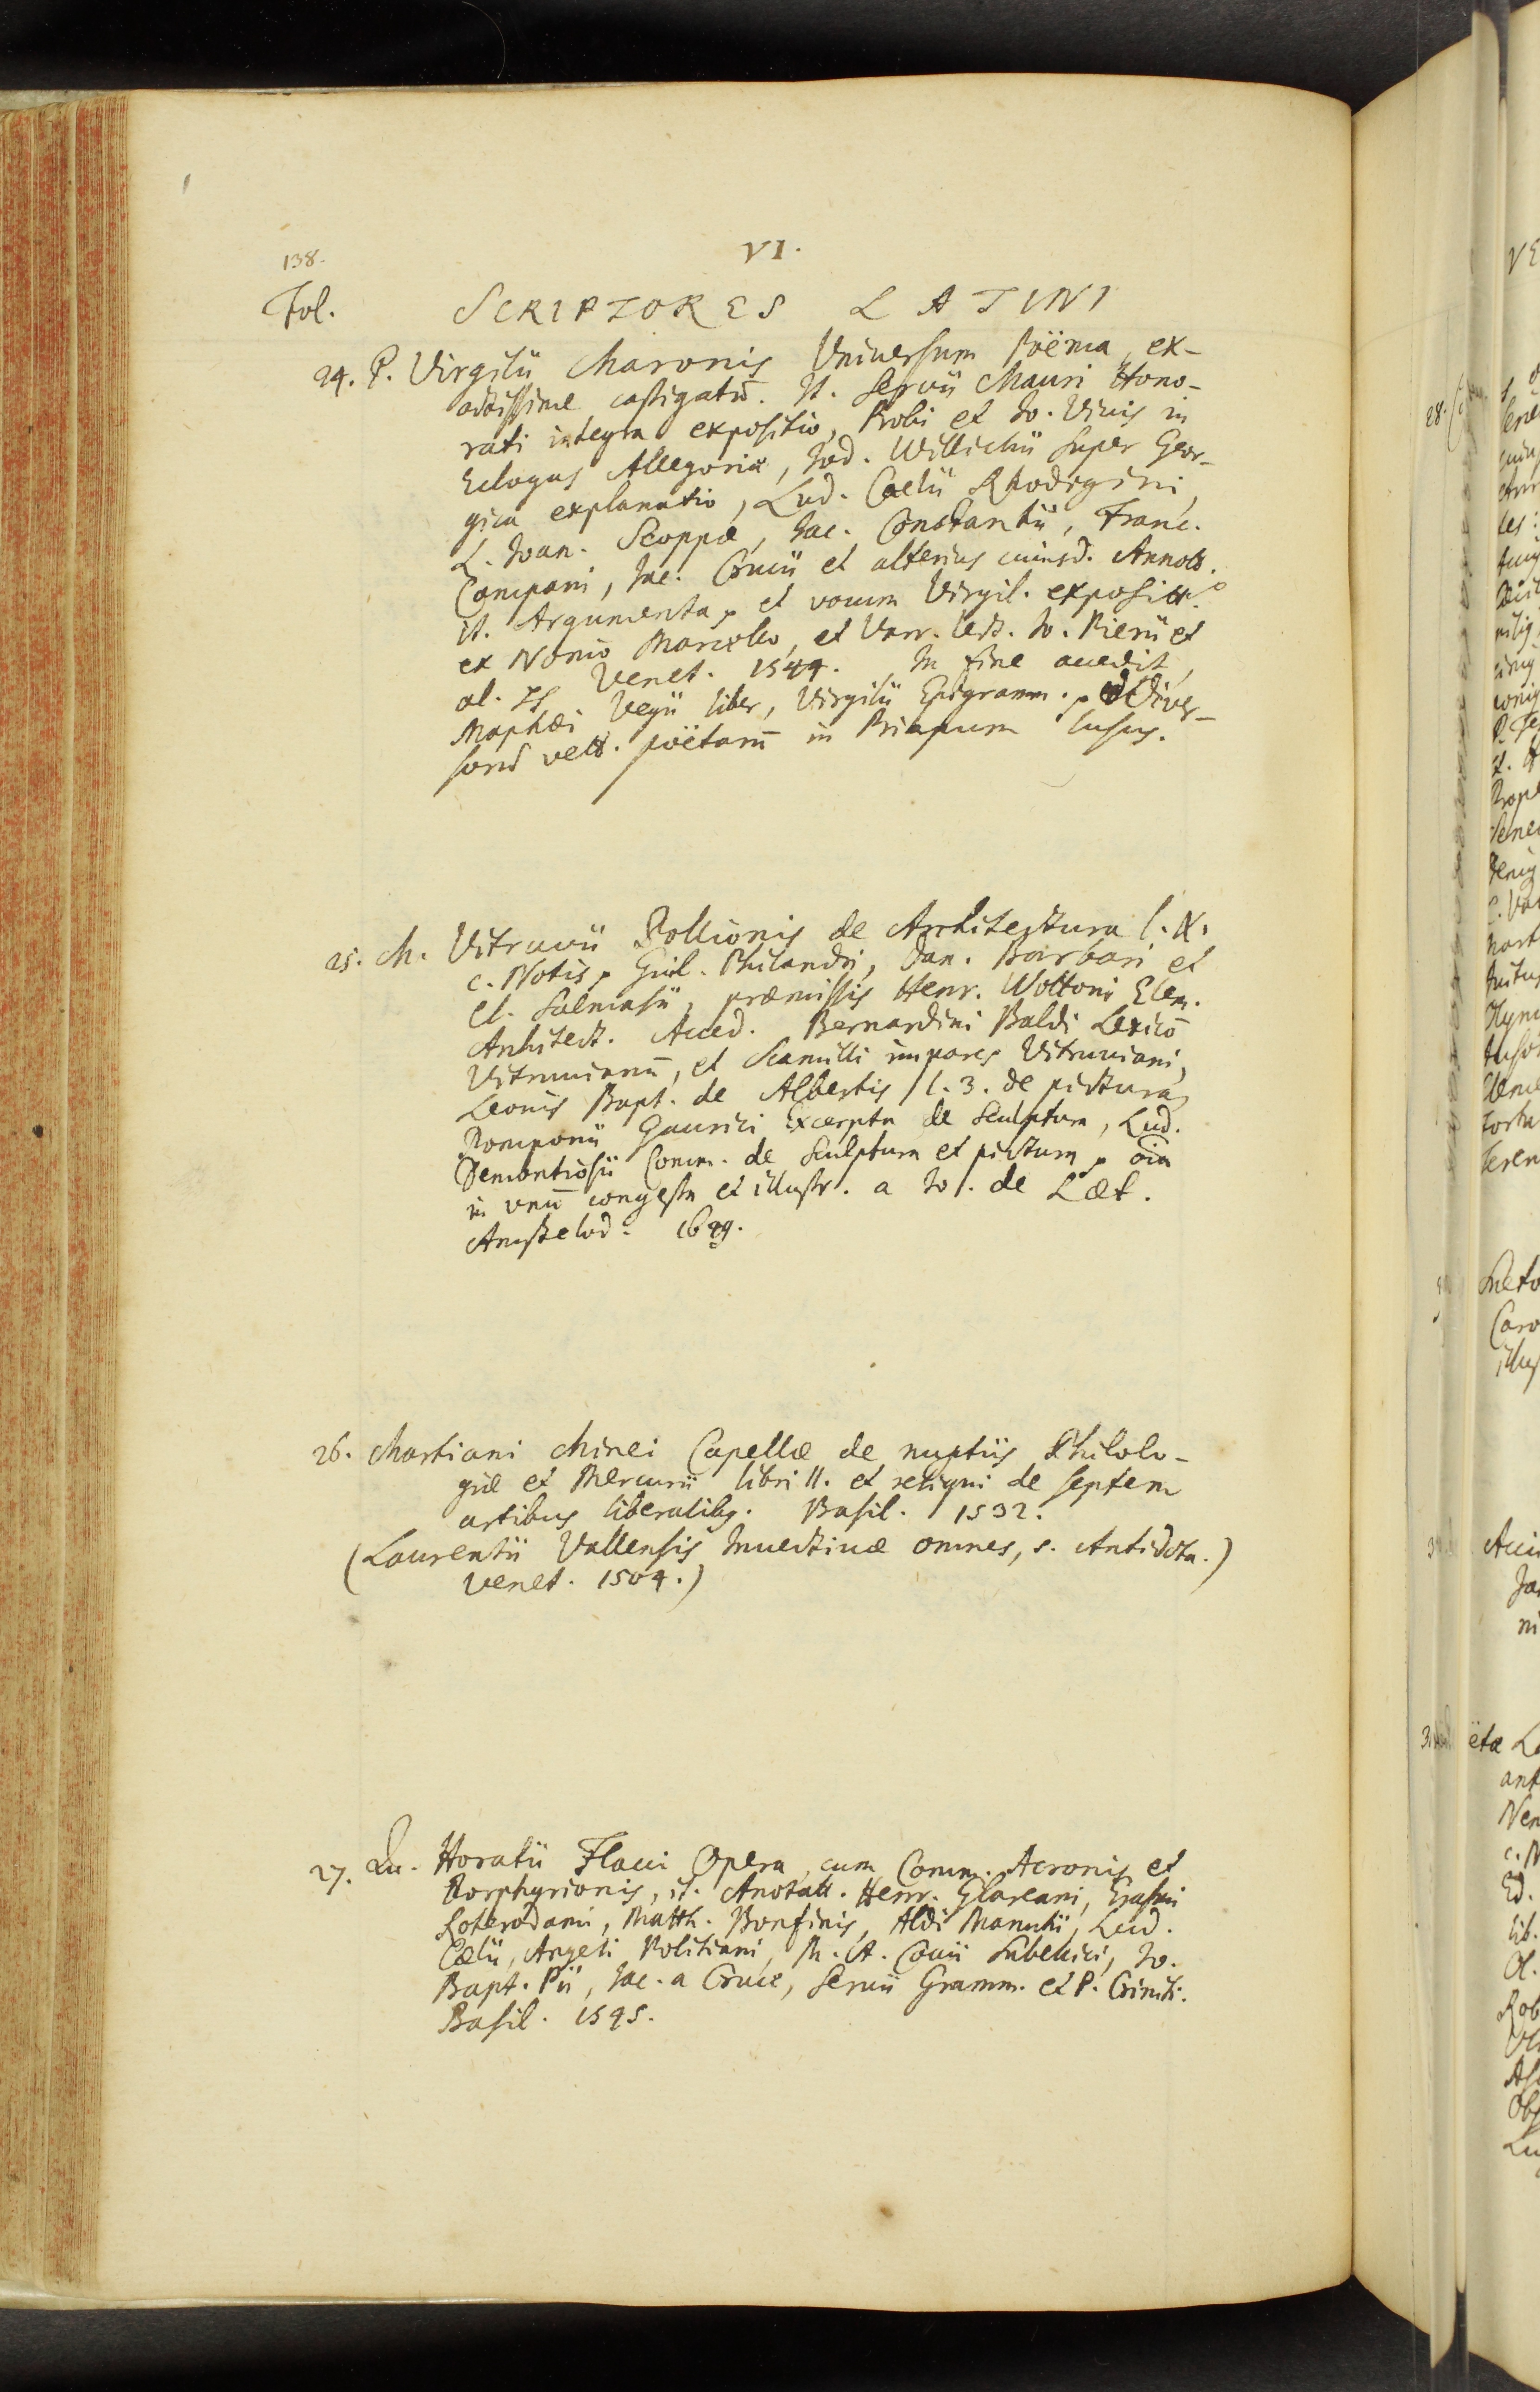 138.
VI.
Fol.
SCRIPTORES LATINI
24. P. Virgilii Maronis Vniuersum Poëma, ex-
actissime castigatū. It. Seruii Mauri Hono-
rati integra expositio, Probi et Io. Viuis in
Eclogas Allegoriæ, Iod. Willichii super Geor-
gica explanatio, Lud. Cœlii Rhodigini,
L. Ioan. Scoppæ, Iac. Constantii, Franc.
Campani, Iac. Crucii et alterius cuiusd. Annott.
it. Argumenta, et vocum Virgil. exposit.
ex Nonio Marcello, et Varr. lect. Io. Pierii et
al. Venet. 1544. In fine accedit
Maphæi Vegii liber, Virgilii Epigramm. Diver-
sorū vett. poëtarū in Priapum lusus.
25. M. Vitruuii Pollionis de Architectura l. X.
c. Notis, Guil. Philandri, Dan. Barbari et
Cl. Salmasii, præmissis Henr. Wottoni Elem.
Architect. Acced. Bernardini Baldi Lexicō
Vitruuianū, et Scamilli impares Vitruuiani,
Leonis Bapt. de Albertis l. 3. de pictura,
Pomponii Gaurici Excerpta de Sculptura, Lud.
Demontiosii Comm. de Sculptura et pictura, oīa
in vnū congesta et illustr. a Io. de Læt.
Amstelod. 1649.
26. Martiani Minei Capellæ de nuptiis Philolo-
giæ et Mercurii libri II. et reliqui de septem
artibus liberalibg. Basil. 1532.
(Laurentii Vallensis Inuectiuæ omnes, s. Antidota.)
Venet. 1504.)
27. Qu. Horatii Flacci Opera, cum Comm. Acronis et
Porphyrionis, it. Anotatt. Henr. Glareani, Erasmi
Roterodami, Matth. Bonfinis, Aldi Manutii, Lud.
Cælii, Angeli Politiani, M. A. Coccii Sabellici, Io.
Bapt. Pii, Iac. a Cruce, Seruii Gramm. et P. Criniti.
Basil. 1545.